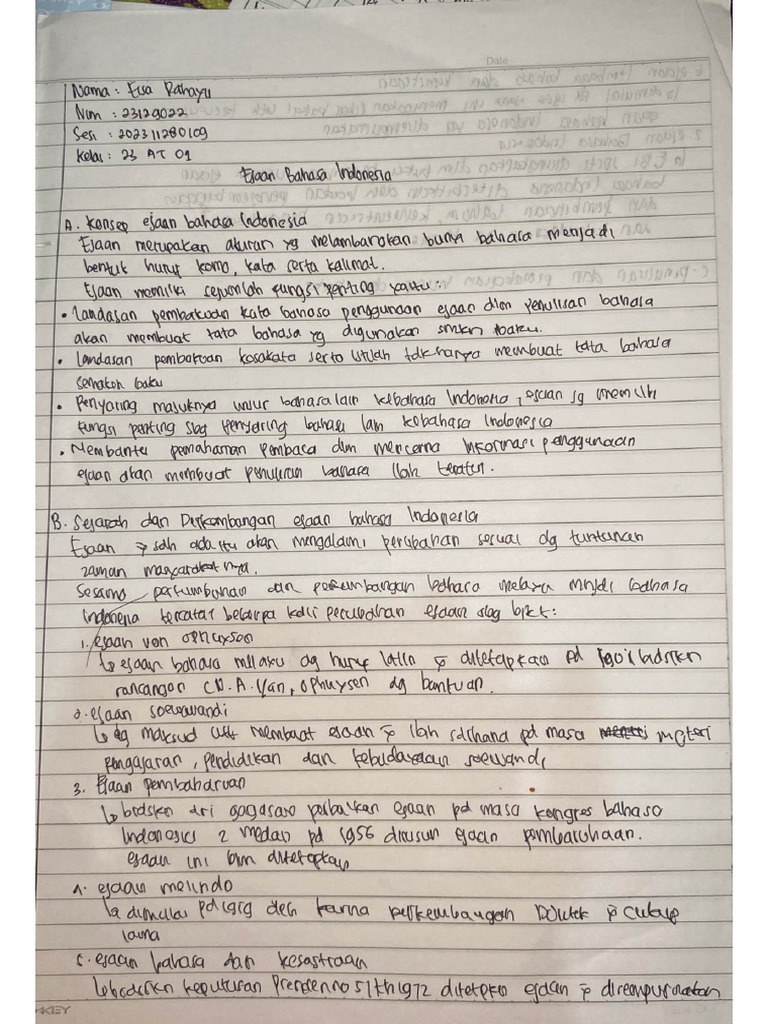 Date
Nama : Eva Rahayu
Nim : 23129022
Sesi : 202311280109
Kelas : 23 AT 01
Ejaan Bahasa Indonesia
A. Konsep ejaan bahasa Indonesia
Ejaan merupakan aturan yg melambangkan bunyi bahasa menjadi
bentuk huruf, kata serta kalimat.
Ejaan memiliki sejumlah fungsi penting yaitu :
• Landasan pembakuan kata bahasa penggunaan ejaan dlm penulisan bahasa
akan membuat tata bahasa yg digunakan smkn baku.
• Landasan pembakuan kosakata serta tdk hanya membuat tata bahasa
semakin baku
• Penyaring masuknya unsur bahasa lain kebahasa Indonesia, ejaan jg memiliki
fungsi penting sbg penyaring bahasa lain kebahasa Indonesia
• Membantu pemahaman pembaca dlm mencerna informasi penggunaan
ejaan akan membuat penulisan bahasa lbh teratur.
B. Sejarah dan Perkembangan ejaan bahasa Indonesia
Ejaan sdh ada itu akan mengalami perubahan sesuai dg tuntunan
zaman masyarakat nya.
pertumbuhan dan perkembangan bahasa melayu mnjdi bahasa
Indonesia tercatat beberapa kali perubahan ejaan sbg brkt :
1. ejaan van ophuysen
↳ ejaan bahasa melayu dg huruf latin ditetapkan pd
rancangan CH. A. Van, ophuysen dg bantuan.
2. ejaan soewandi
↳ dg maksud utk membuat ejaan lbh sdrhana pd masa materi
pengajaran, pendidikan dan kebudayaan soewandi
3. Ejaan pembaharuan
↳ brdsrkn dri gagasan perbaikan ejaan pd masa kongres bahasa
Indonesia 2 medan pd 1956 disusun ejaan pembaruhaan.
ejaan ini blm ditetapkan
ejaan melindo
↳ dimulai pd 1959 karna perkembangan cukup
lama
5. ejaan bahasa dan kesastraan
↳ brdsrkn keputusan Presiden no 57 th 1972 ditetpkn ejaan